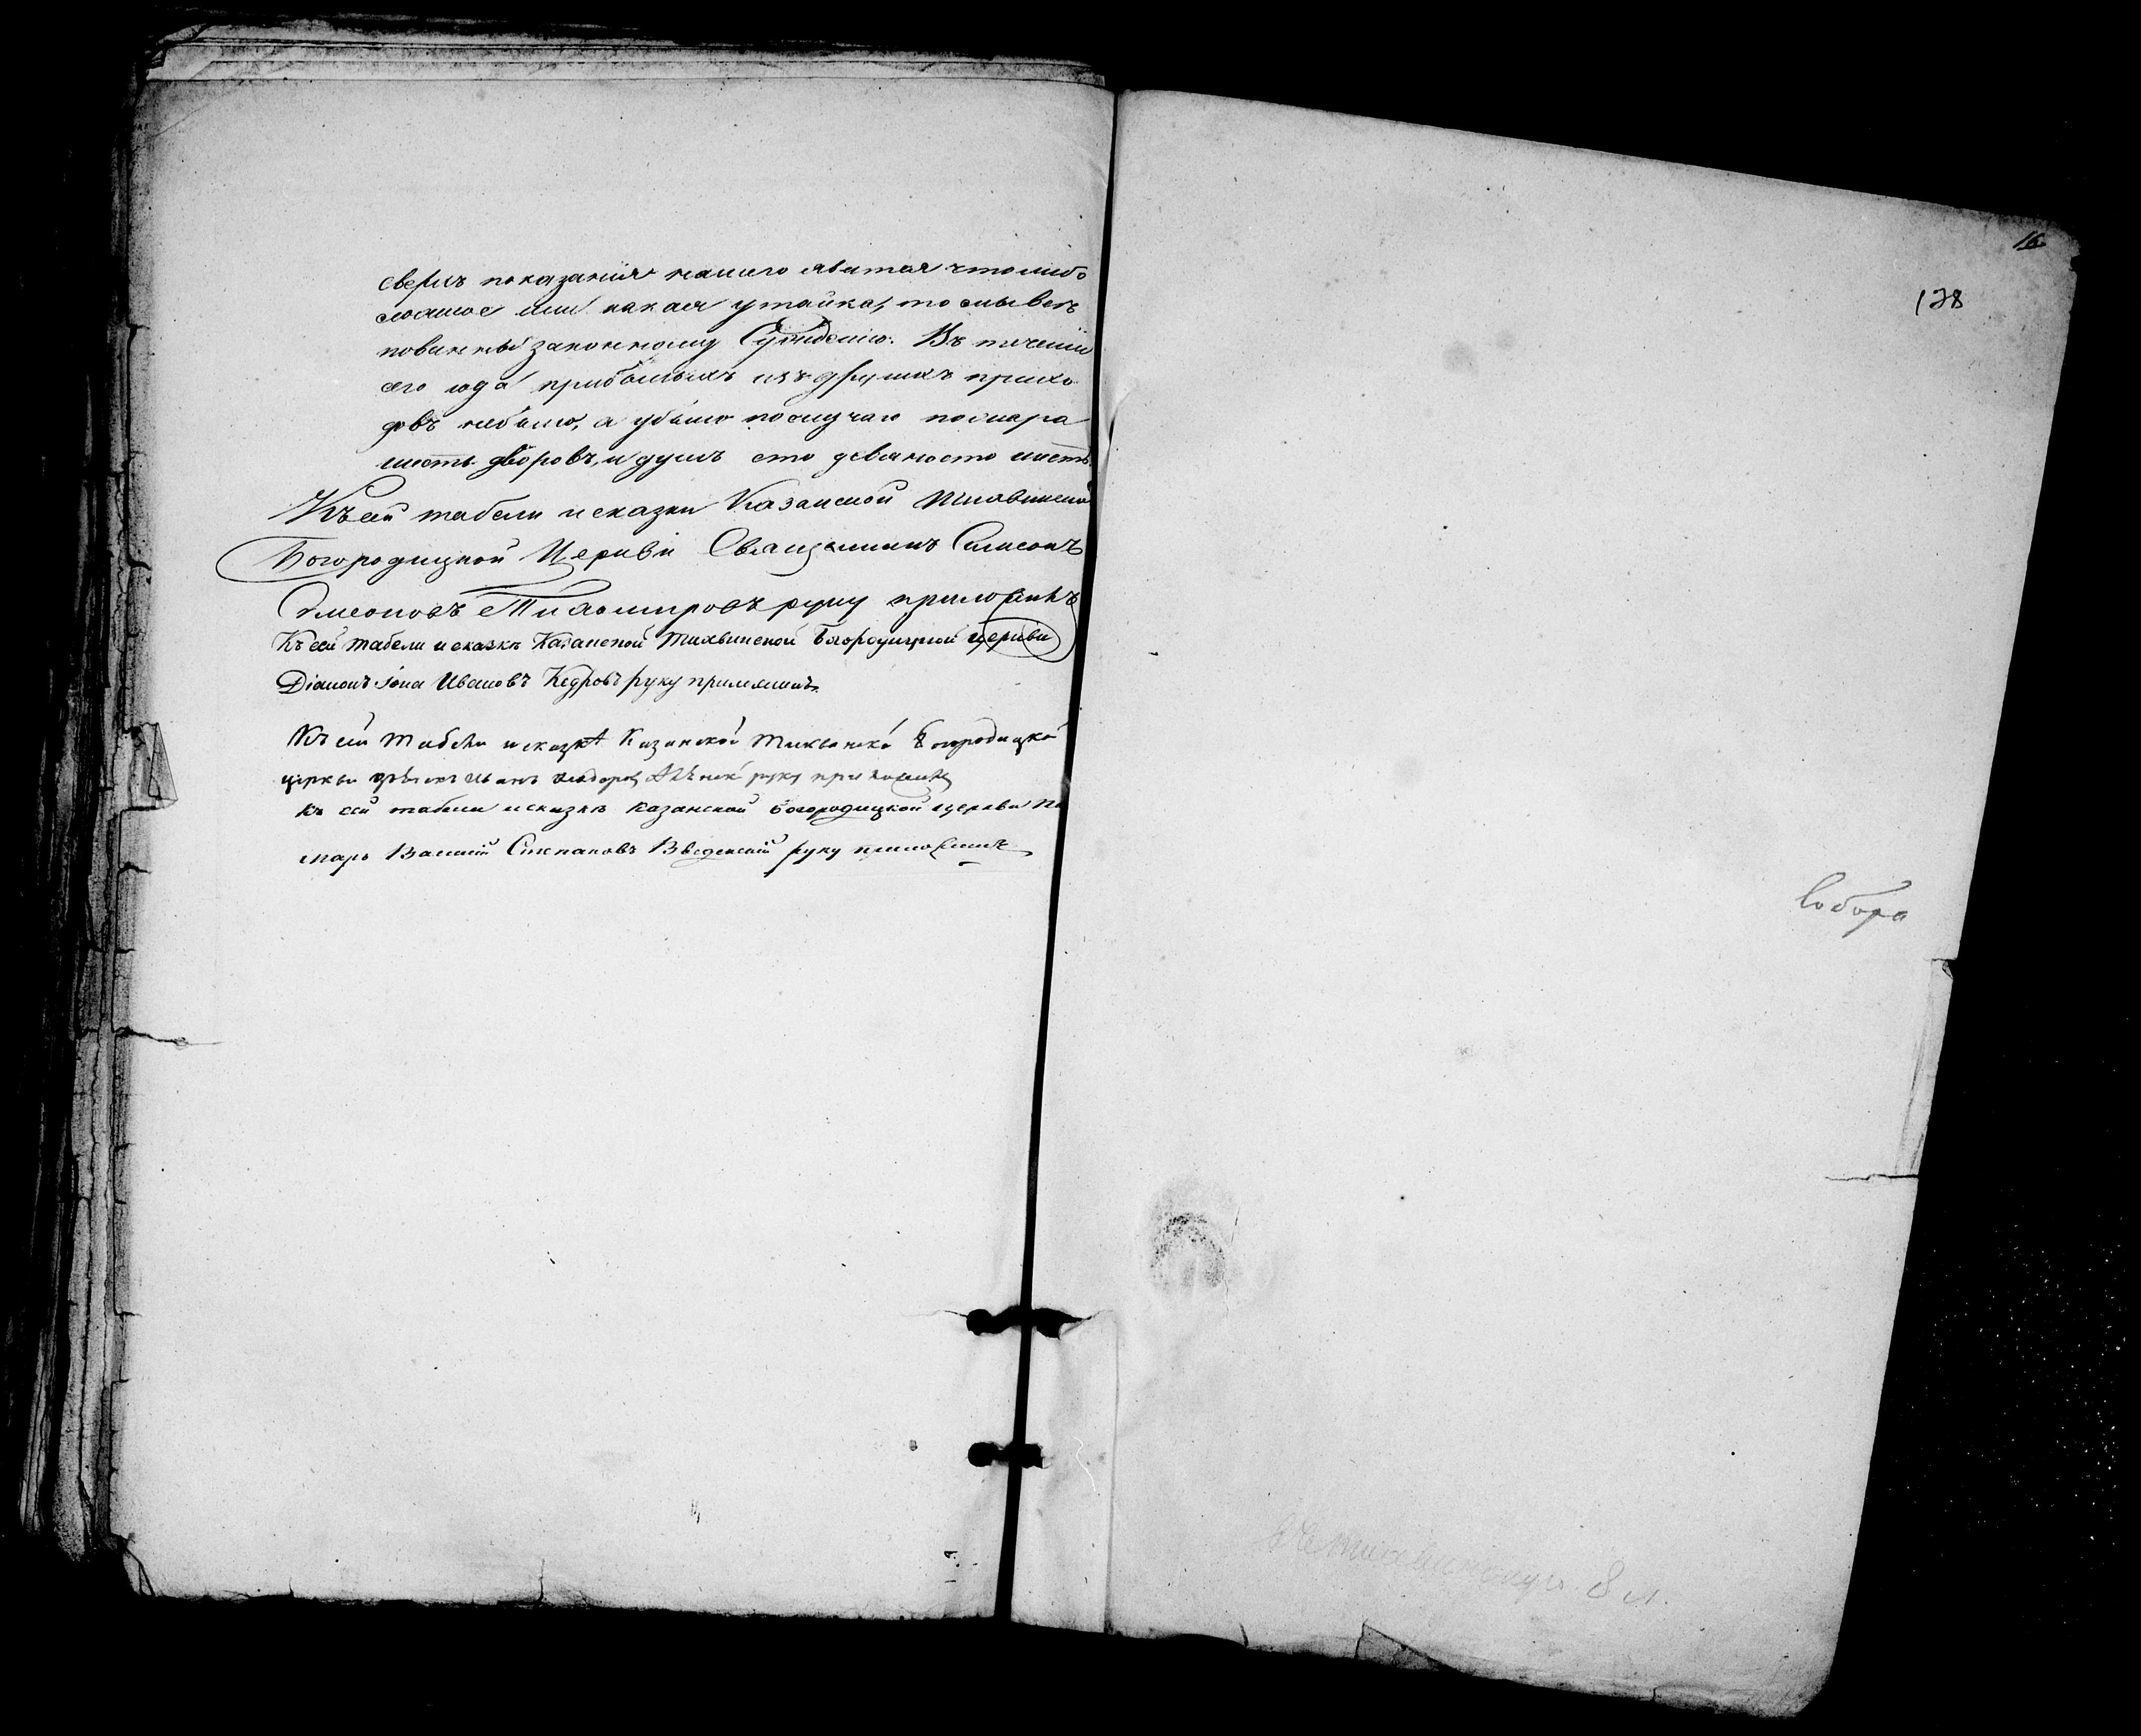 сверхъ показанія нашего явится что либо
ложное или какая утайка, то мы все
повинны законному Сужденію. Въ теченіи
сего года прибылыхъ изъ другихъ прихо
довъ небыло, а убыло по случаю пожара
шесть дворовъ, и душъ сто девяносто шесть.
Къ сей табели и сказки Казанской Тихвинской
Богородицкой Церкви Священникъ Симеонъ
Симеоновъ руку приложилъ
Къ сей табели и сказкѣ Казанской Тихвинской Богородицкой церкви
Діаконъ Іона Ивановъ Кедровъ руку приложилъ.
Къ сей табели и сказкѣ Казанской Тихвинской Богородицкой
церкви Иванъ руку приложилъ
Къ сей табели и сказкѣ Казанской Богородицкой церкви по
марь Василій Степановъ Введенскій руку приложилъ
16
178
Собора
8 л.